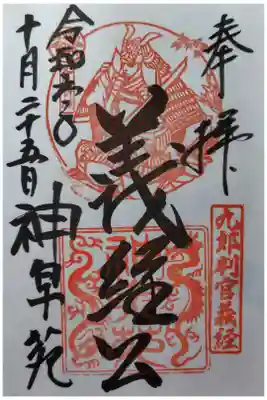 奉拝
九郎判官義経
義経公
令和
十月二十五日
神泉苑